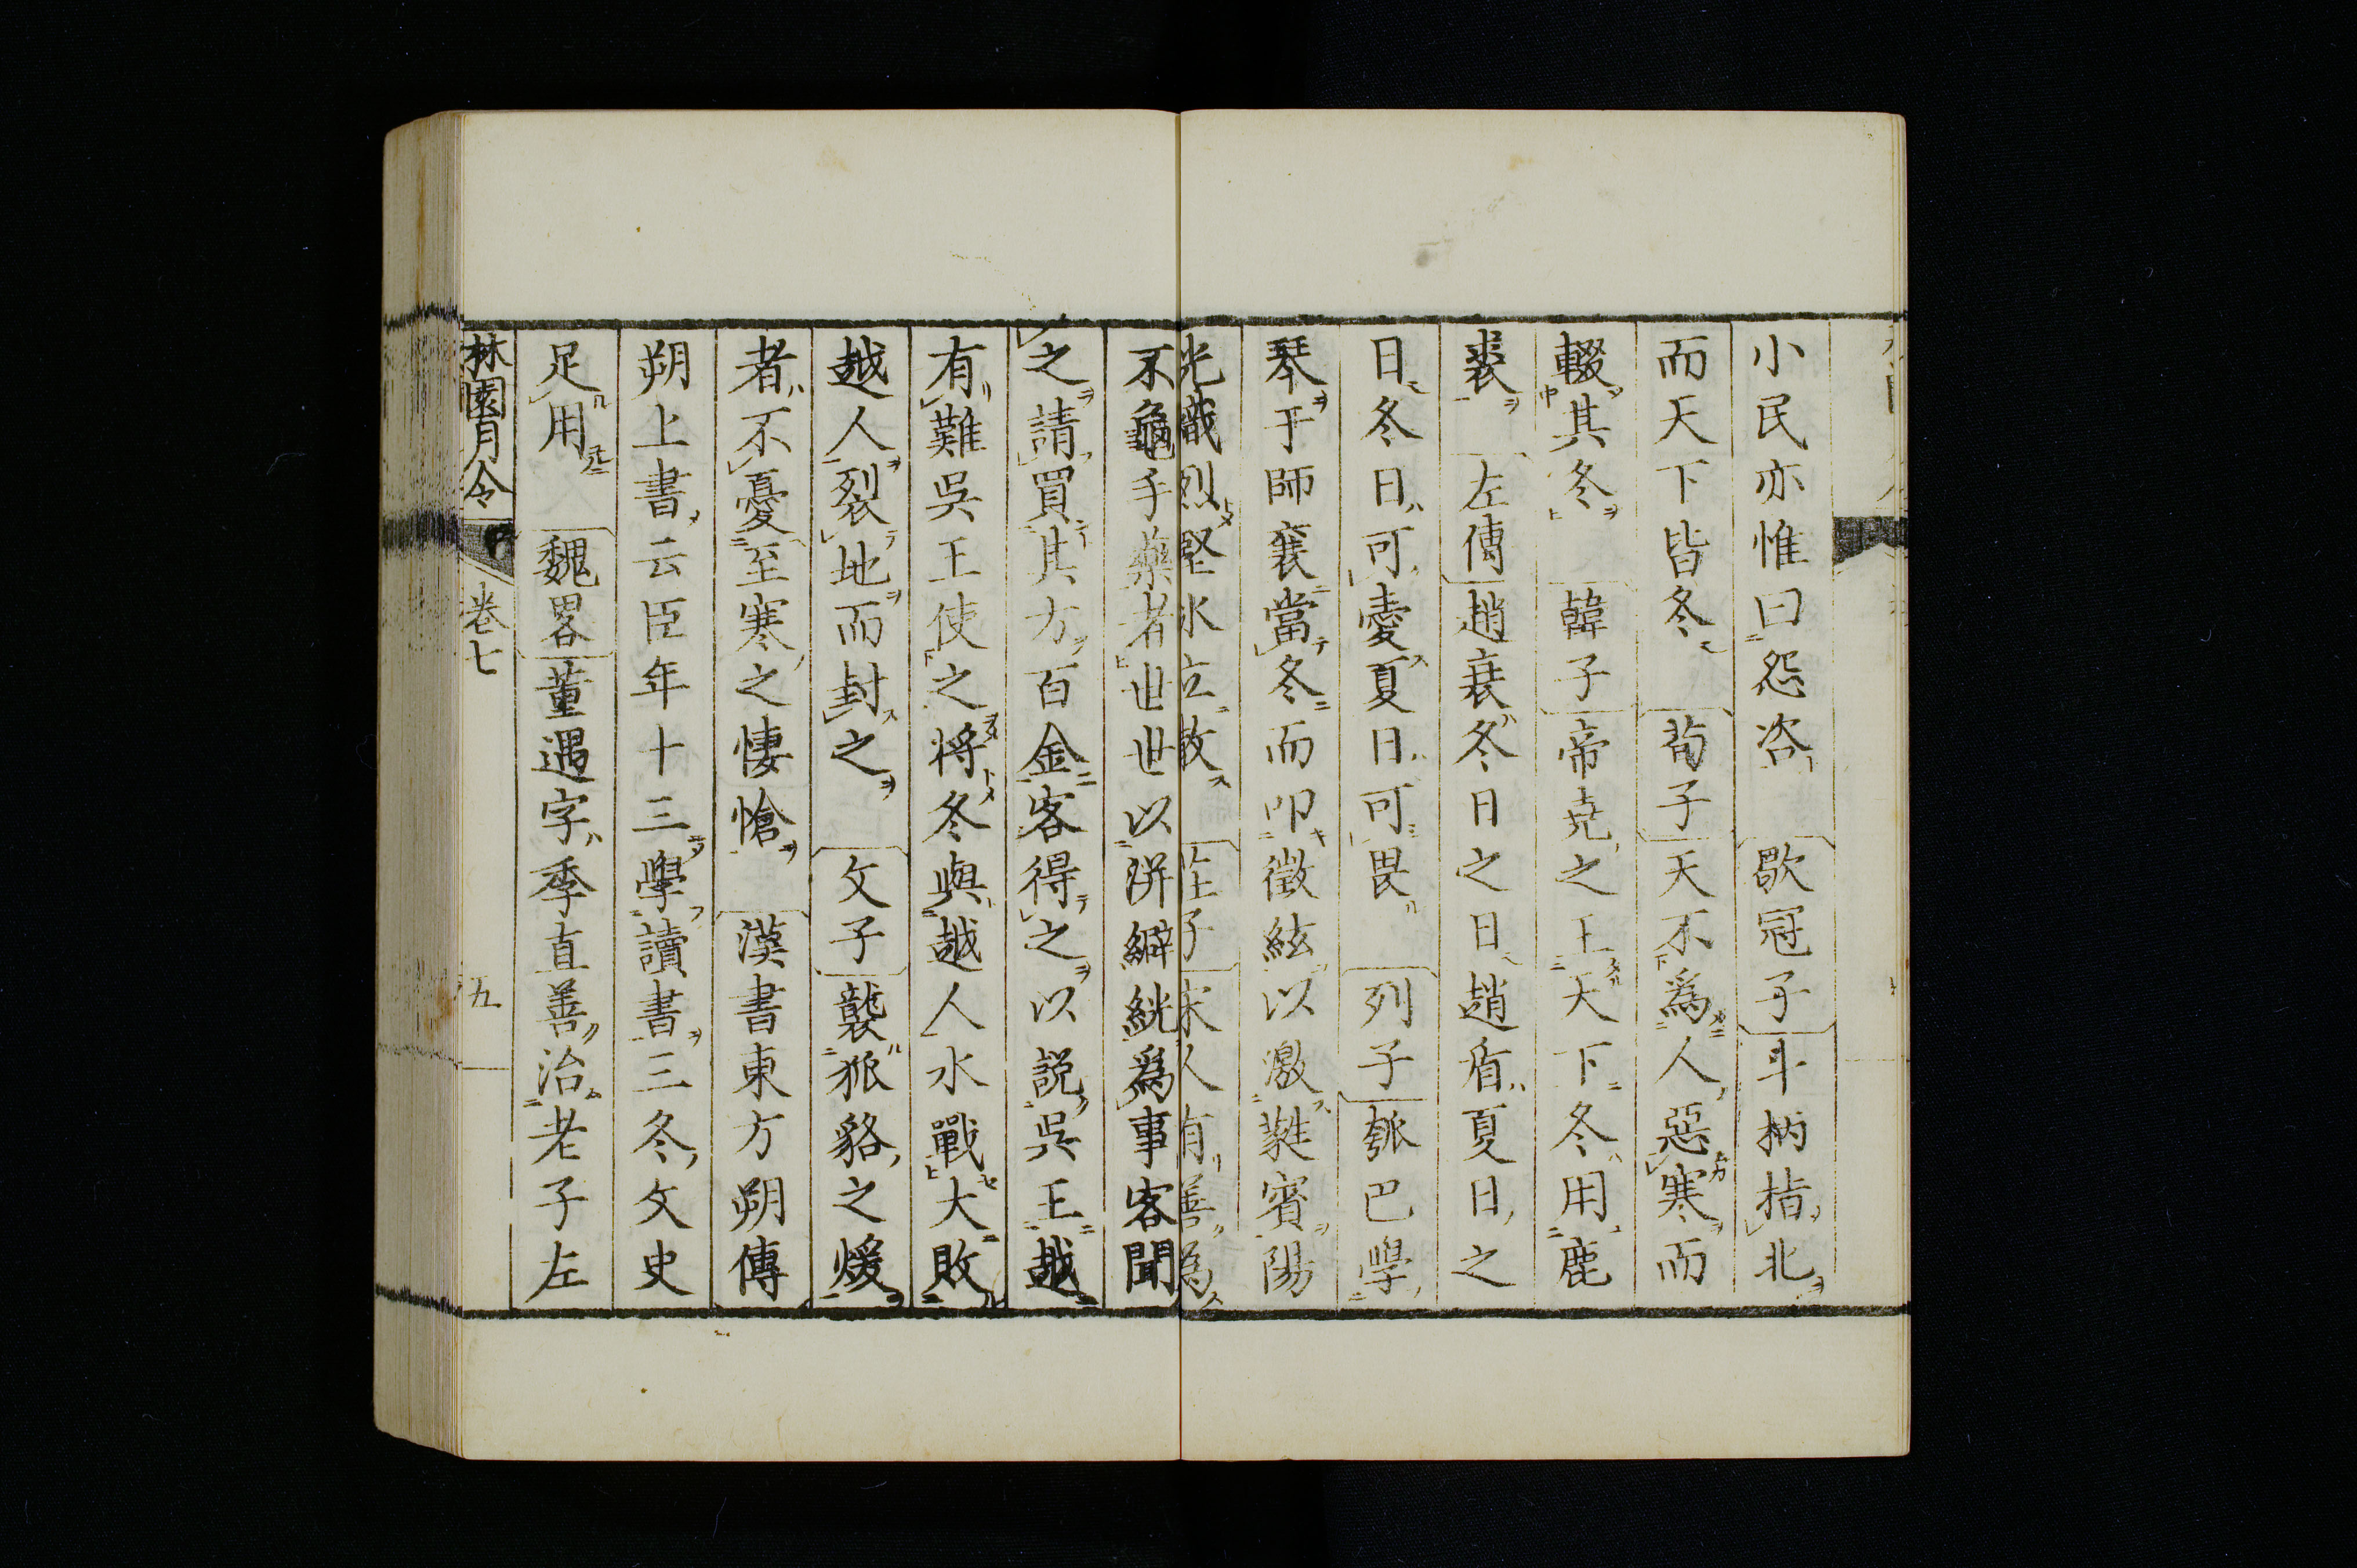 小民亦惟曰怨咨　歇冠子斗柄指北
而天下皆冬　荀子天不爲人惡寒而
輟其冬　韓子帝尭之王天下冬用鹿
裘　左傳趙衰冬日之日趙盾夏日之
日冬日可愛夏日可畏　列子瓠巴學
琴于師襄當冬而叩徵絃以激蕤賓陽
光熾烈堅氷立散　荘子宋人有善爲
不龜手藥者世世以洴澼絖爲事客聞
之請買其方百金客得之以説呉王越
有難呉王使之將冬與越人水戰大敗
越人裂地而封之　文子襲狐貉之煖
者不憂至寒之悽愴　漢書東方朔傳
朔上書云臣年十三學讀書三冬文史
足用　魏畧董遇字季直善治老子左
林園月令　卷七　五